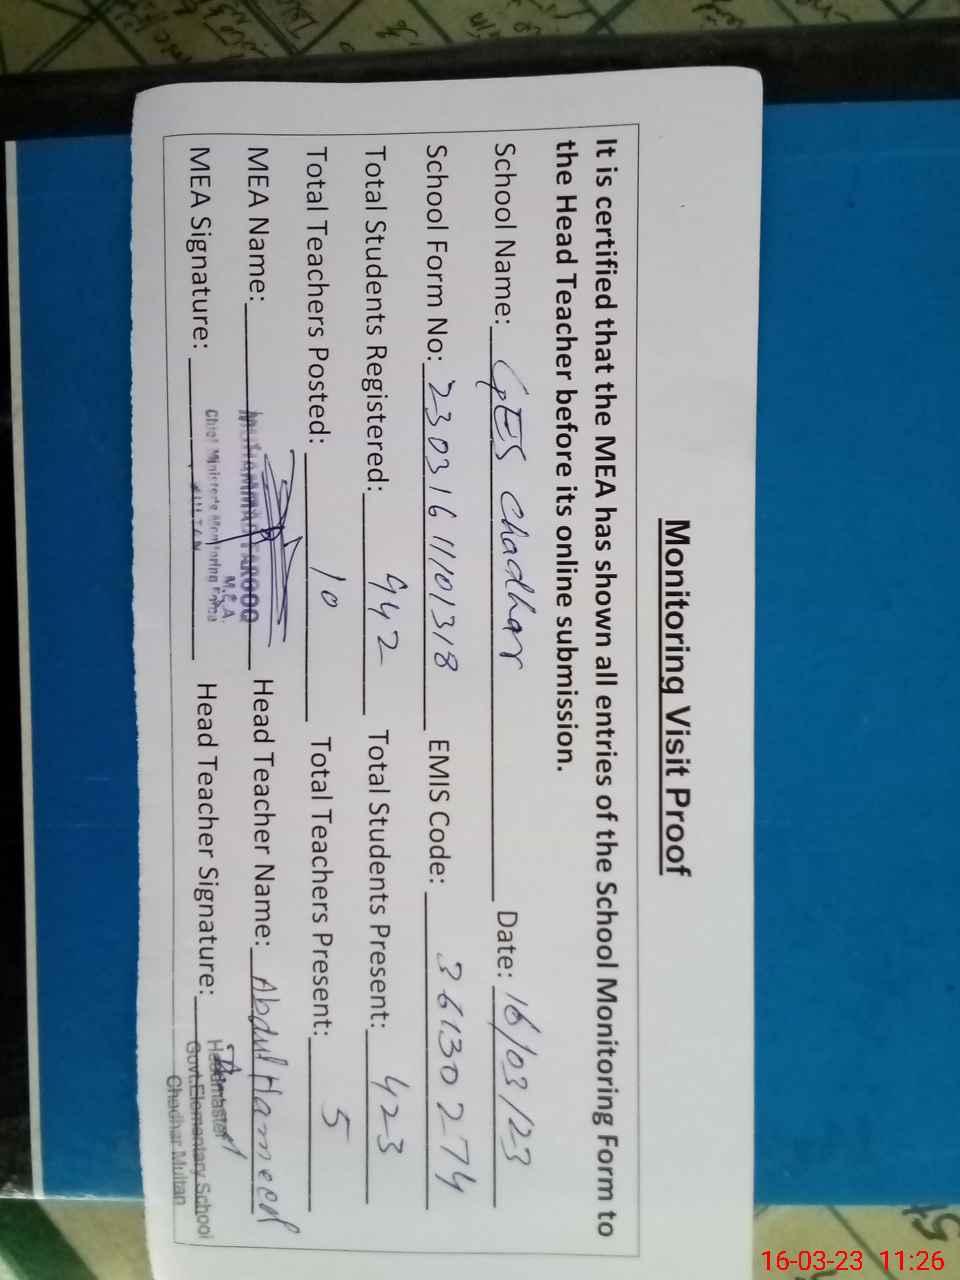 Monitoring Visit Proof
It is certified that the MEA has shown all entries of the School Monitoring Form to
the Head Teacher before its online submission.
School Name: GES Chadhar Date: 16/03/23
School Form No: 23031611101318 EMIS Code: 36130274
Total Students Registered: 442 Total Students Present: 423
Total Teachers Posted: 10 Total Teachers Present: 5
MEA Name: MUHAMMAD FAROOQ Head Teacher Name: Abdul Hameed
M.E.A.
Chief Ministers Monitoring Force
MULTAN
MEA Signature: Head Teacher Signature:
Headmaster
Govt. Elementary School
Chadhar Multan
16-03-23 11:26